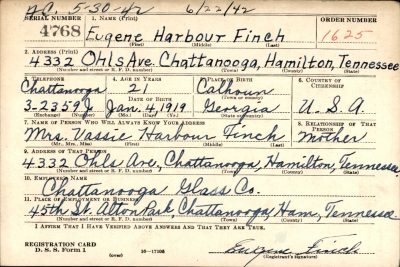 D.C. 5-30-42 6/22/42
SERIAL NUMBER 1. NAME (Print) ORDER NUMBER
4768 Eugene Harbour Finch 1625
(First) (Middle) (Last)
2. ADDRESS (Print)
4332 Ohls Ave. Chattanooga, Hamilton, Tennessee
(Number and street or R. F. D. number) (Town) (County) (State)
3. TELEPHONE 4. AGE IN YEARS 5. PLACE OF BIRTH 6. COUNTRY OF CITIZENSHIP
Chattanooga 21 Calhoun
DATE OF BIRTH (Town or county)
3-2359J Jan. 4, 1919 Georgia U.S.A.
(Exchange) (Number) (Mo.) (Day) (Yr.) (State or country)
7. NAME OF PERSON WHO WILL ALWAYS KNOW YOUR ADDRESS 8. RELATIONSHIP OF THAT PERSON
Mrs. Vassie Harbour Finch Mother
(Mr., Mrs., Miss) (First) (Middle) (Last)
9. ADDRESS OF THAT PERSON
4332 Ohls Ave., Chattanooga, Hamilton, Tennessee
(Number and street or R. F. D. number) (Town) (County) (State)
10. EMPLOYER'S NAME
Chattanooga Glass Co.
11. PLACE OF EMPLOYMENT OR BUSINESS
45th St. Alton Park, Chattanooga, Ham, Tennessee.
(Number and street or R. F. D. number) (Town) (County) (State)
I AFFIRM THAT I HAVE VERIFIED ABOVE ANSWERS AND THAT THEY ARE TRUE.
REGISTRATION CARD
D. S. S. Form 1 (over) 16-17105 Eugene Finch
(Registrant's signature)